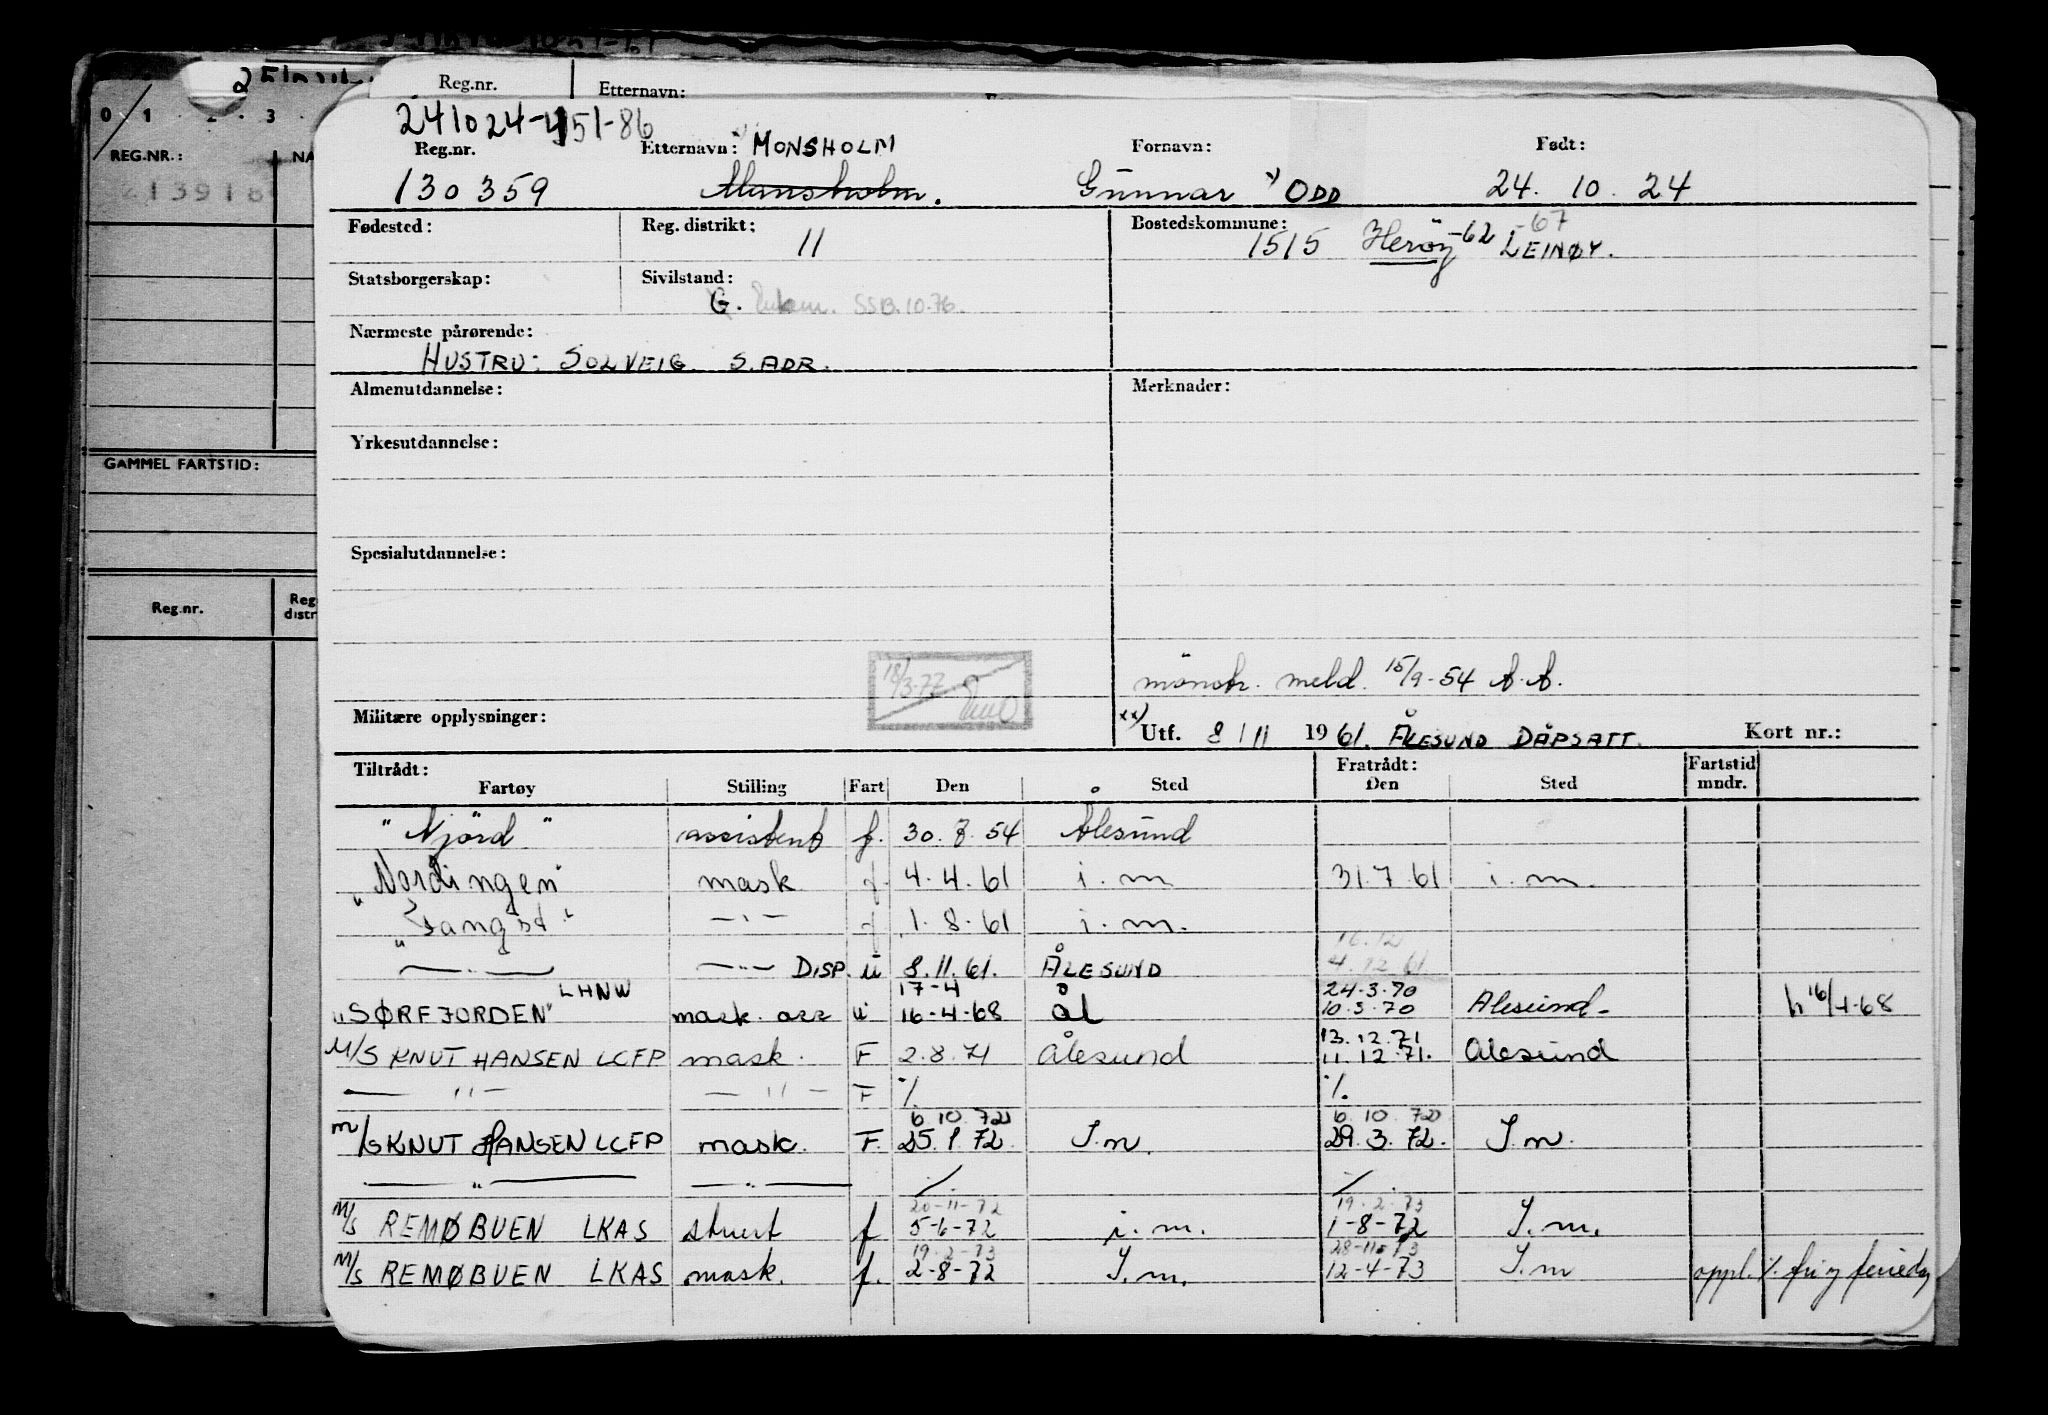 Reg.nr. Etternavn:
0 1 2 3
REG.NR.: NA
213918
GAMMEL FARTSTID:
Reg.nr. Reg distr
241024-451-86
Reg.nr. Etternavn: MONSHOLM Fornavn: Født:
130359 Munsholm. Gunnar x) ODD 24. 10. 24
Fødested: Reg. distrikt: 11 Bostedskommune: 1515 Herøy -62 LEINØY. -67
Statsborgerskap: Sivilstand: G. SSB. 10.76.
Nærmeste pårørende:
HUSTRU: SOLVEIG S. ADR.
Almenutdannelse: Merknader:
Yrkesutdannelse:
Spesialutdannelse:
18/3.77
mønstr. meld. 15/9-54 A.A.
Militære opplysninger: xx) Utf. 8/11 1961. ÅLESUND DÅPSATT. Kort nr.:
Tiltrådt: Fratrådt: Fartstid
Fartøy Stilling Fart Den Sted Den Sted mndr.
"Njörd" assistent f. 30. 7. 54 Ålesund
"Nordingen" mask f. 4. 4. 61 i. m 31. 7. 61 i. m.
"Fangst" —"— f 1. 8. 61 i. m.
16.12
—"— —"— DISP. u 8. 11. 61. ÅLESUND 4.12.61
LHNW 17-4 24-3-70
"SØRFJORDEN" mask. ass u 16-4-68 Ål 10.3.70 Ålesund- h 16/4-68
13.12.71
M/S KNUT HANSEN LCFP mask. F 2. 8. 71 Ålesund 11. 12. 71. Ålesund
—"— —"— F ./. ./.
6. 10. 72 6. 10. 72
M/S KNUT HANSEN LCFP mask. F. 25. 1. 72. I.m. 29. 3. 72. I.m.
—"— —"— ./. ./.
20-11-72 19. 2. 73
M/S REMØBUEN LKAS stuert f 5-6-72 i. m. 1-8-72 I. m.
19. 2. 73 28-11-73
M/S REMØBUEN LKAS mask. f. 2-8-72 I. m. 12-4-73 I. m oppl. ./. fri og feriedag